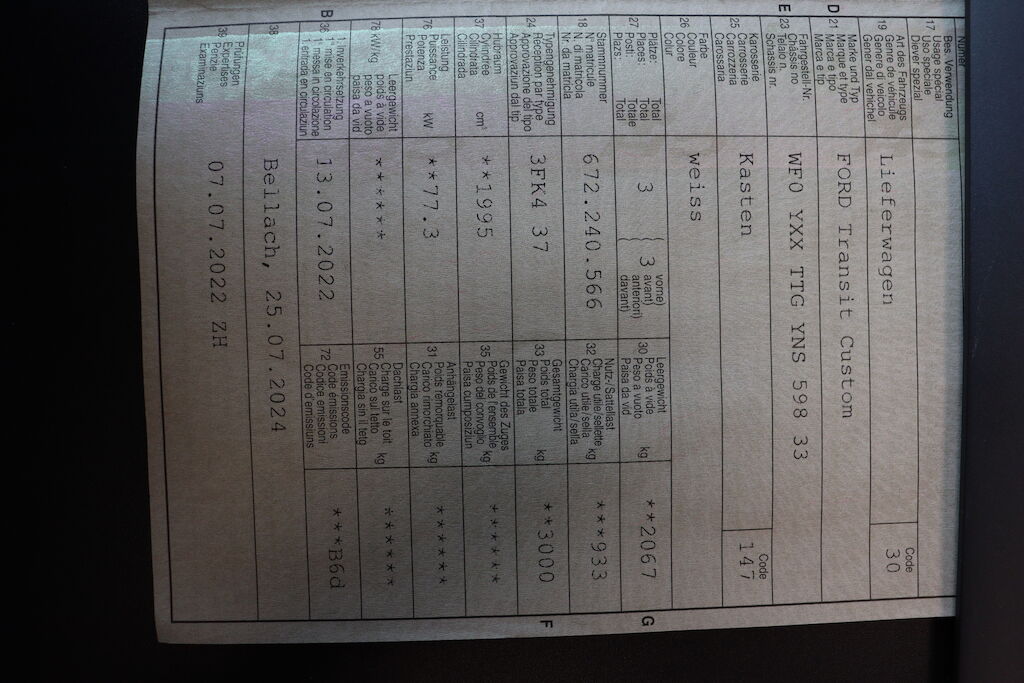 Bes. Verwendung
17 Usage spécial
Uso speciale
Diever spezial
Art des Fahrzeugs
19 Genre de véhicule
Genere di veicolo
Gener dal vehichel
Lieferwagen
Code
30
D
Marke und Typ
21 Marque et type
Marca e tipo
Marca e tip
FORD Transit Custom
E
Fahrgestell-Nr.
23 Châssis no
Telaio n.
Schassis nr.
WF0 YXX TTG YNS 598 33
Karosserie
25 Carrosserie
Carrozzeria
Carossaria
Kasten
Code
147
Farbe
26 Couleur
Colore
Colur
weiss
Plätze: Total
27 Places: Total
Posti: Totale
Plazs: Total
3
vorne)
3 avant)
anteriori)
davant)
Leergewicht
30 Poids à vide
Peso a vuoto
Paisa da vid
kg
**2067
G
Stammnummer
18 N° matricule
N. di matricola
Nr. da matricla
672.240.566
Nutz-/Sattellast
32 Charge utile/sellette
Carico utile/sella
Chargia utila/sella
kg
***933
Typengenehmigung
24 Réception par type
Approvazione del tipo
Approvaziun dal tip
3FK4 37
Gesamtgewicht
33 Poids total
Peso totale
Paisa totala
kg
**3000
F
Hubraum
37 Cylindrée
Cilindrata
Cilindrada
cm³
**1995
Gewicht des Zuges
35 Poids de l'ensemble
Peso del convoglio
Paisa cumposiziun
kg
******
Leistung
76 Puissance
Potenza
Prestaziun
kW
**77.3
Anhängelast
31 Poids remorquable
Carico rimorchiato
Chargia annexa
kg
******
78 kW/kg
Leergewicht
poids à vide
peso a vuoto
paisa da vid
******
Dachlast
55 Charge sur le toit
Carico sul tetto
Chargia sin il tetg
kg
******
B
1. Inverkehrsetzung
36 1re mise en circulation
1a messa in circolazione
1. entrada en circulaziun
13.07.2022
Emissionscode
72 Code émissions
Codice emissioni
Code d'emissiuns
***B6d
38
Bellach, 25.07.2024
Prüfungen
39 Expertises
Perizie
Examinaziuns
07.07.2022 ZH